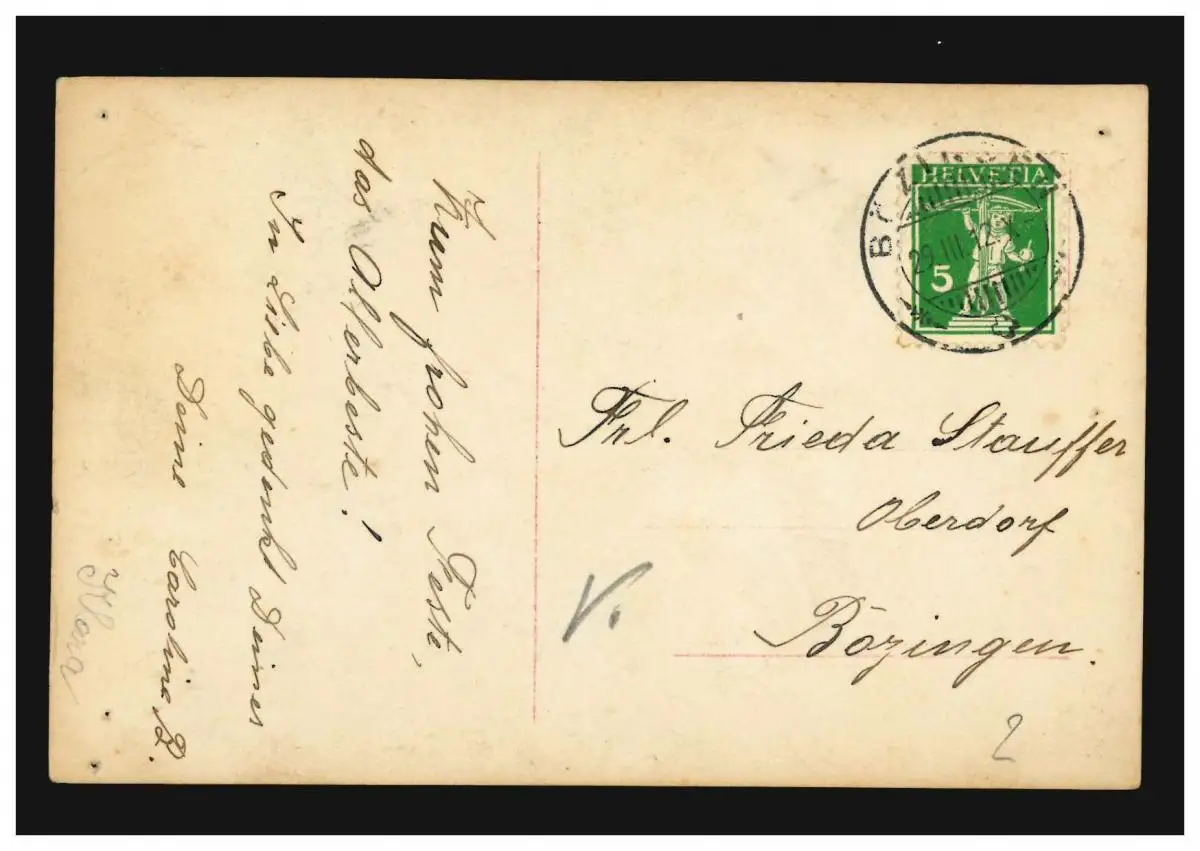 Zum frohen Feste,
das Allerbeste!
In Liebe gedenkt Deiner
Deine Carolina B.
Klara
HELVETIA
5
29.III.12.X-
Frl. Frieda Stauffer
Oberdorf
Bözingen.
V.
2